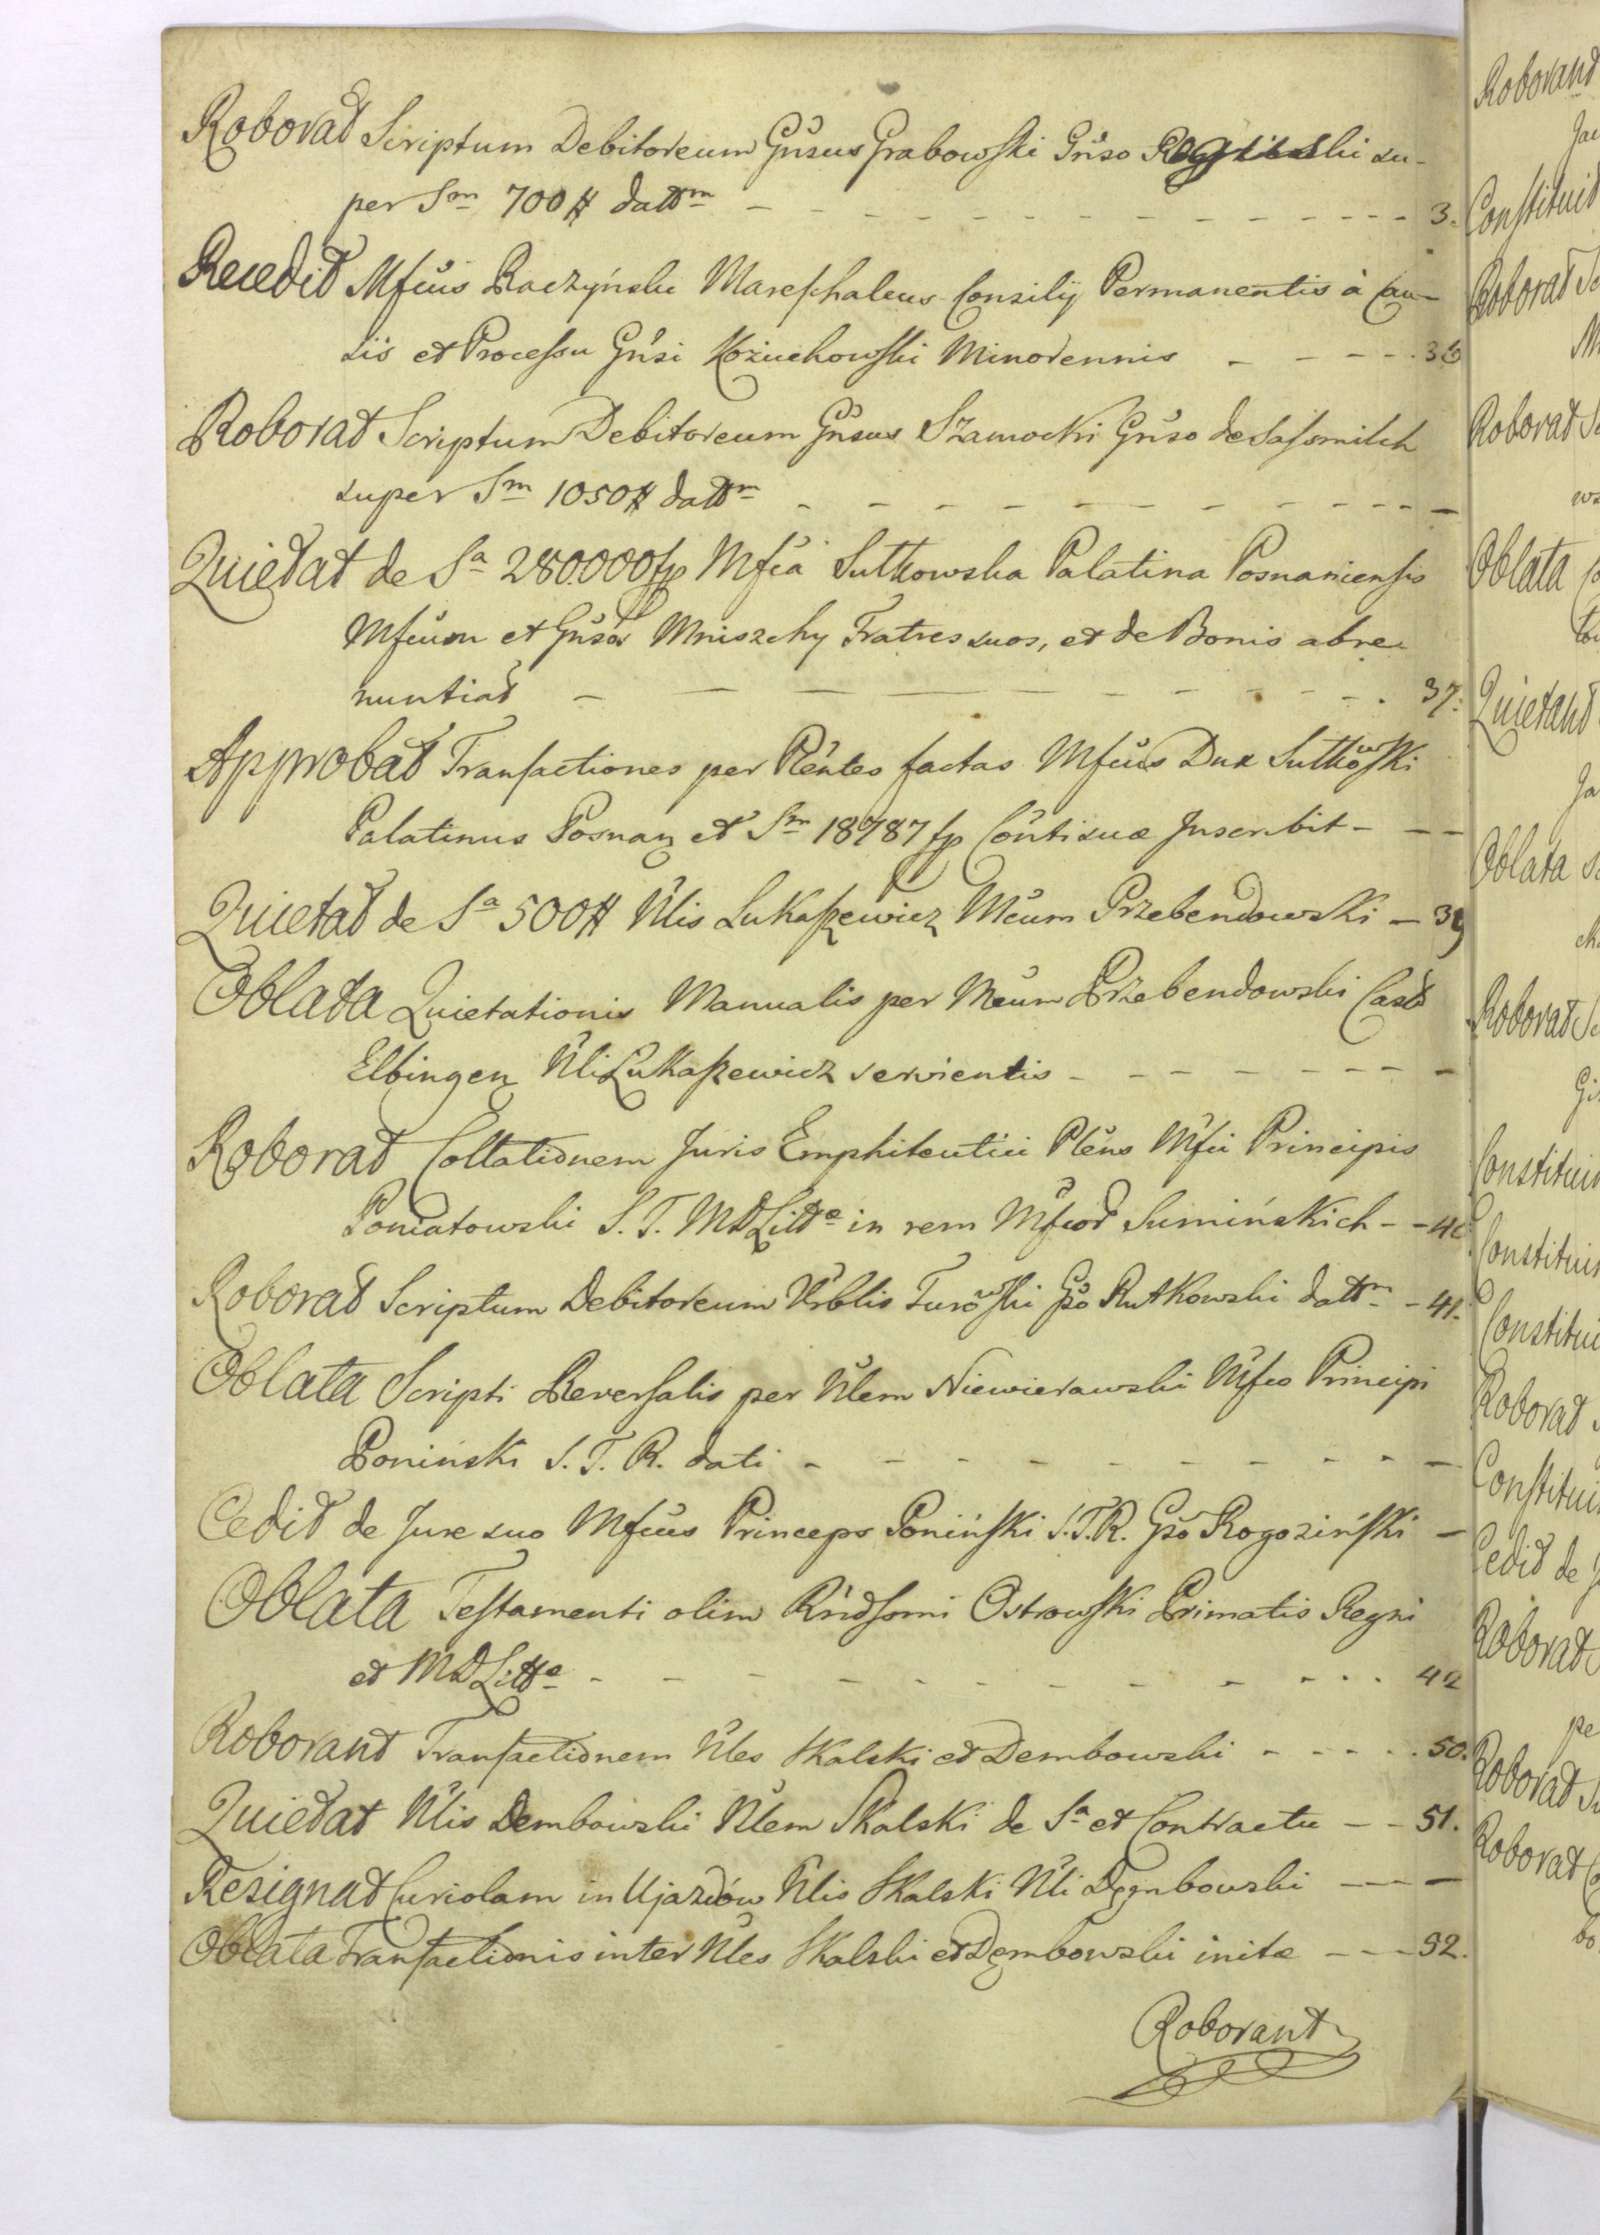 Roborat Scriptum Debitoreum Gnsus Grabowski Gnso su-
per Sm 700 # dattm - - - 3.
Recedit Mfcus Raczyński Mareschalcus Consilij Permanentis à Cau-
sis et Processu Gnsi Kożuchowski Minorennis - - - 36
Roborat Scriptum Debitoreum Gnsus Szamocki Gnso de Sassmilch
super Sm 1050 # dattm - - -
Quietat de Sa 280000 fp Mfca Sutkowska Palatina Posnaniensis
Mfcum et Gnsos Mniszchy Fratres suos, et de Bonis abre-
nuntiat - - - 37.
Approbat Transactiones per Plentes factas Mfcus Dux Sutkowski
Palatinus Posnan et Sm 18787 fp Conti suæ Inscribit - - -
Quietat de Sa 500 # Nlis Lukaszewicz Mcum Przebendowski - 39
Oblata Quietationis Manualis per Mcum Przebendowski Cast
Elbingen Nli Lukaszewicz servientis - - -
Roborat Collationem Juris Emphiteutici Plens Mfci Principis
Poniatowski S. T. MDLitte in rem Mfcor Sumińskich - - 40
Roborat Scriptum Debitoreum Vrblis Turowski Gso Rutkowski dattm - - 41.
Oblata Scripti Reversalis per Nlem Niewierawski Mfco Principi
Poniński S. T. R. dati - - -
Cedit de Jure suo Mfcus Princeps Poniński S. T. R. Gso Rogoziński -
Oblata Testamenti olim Rndssmi Ostrowski Primatis Regni
et MDLitte - - - 42
Roborant Transactionem Nles Skalski et Dembowski - - - 50.
Quietat Nlis Dembowski Nlem Skalski de Sa et Contractu - - 51.
Resignat Curiolam in Ujazdów Nlis Skalski Nli Dembowski - - -
Oblata Transactionis inter Nles Skalski et Dembowski initæ - - - 52.
Roborant